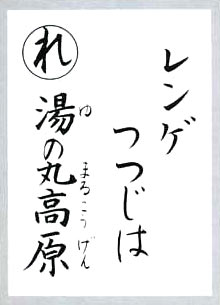 れ
レンゲ
つつじは
湯の丸高原
ゆ
まるこうげん